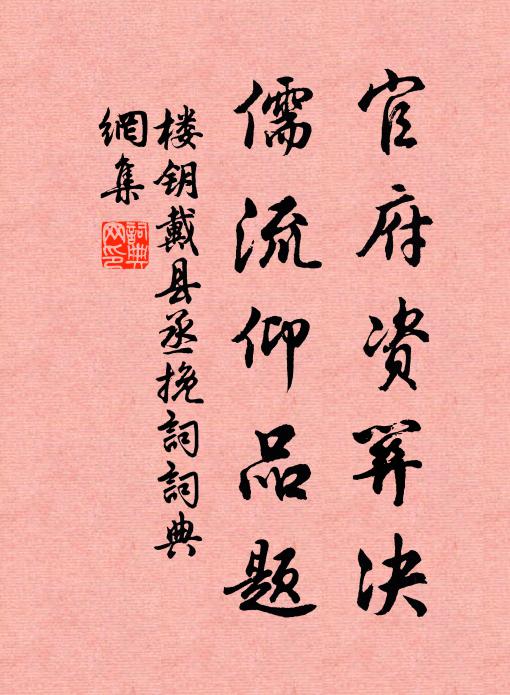 官府资筭决
儒流仰品题
楼钥戴县丞挽词詞典
網集
詞典网印